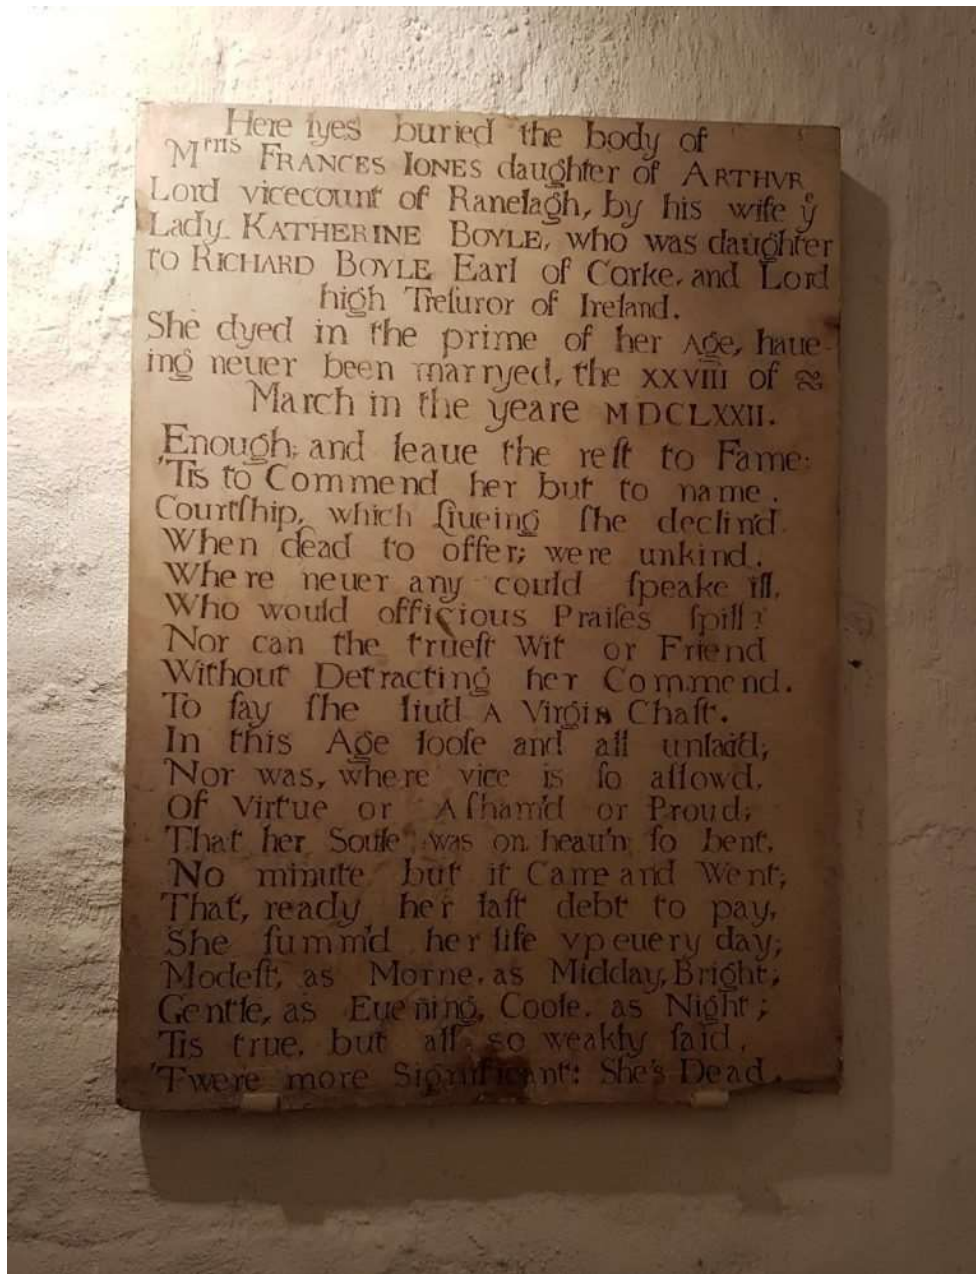 Here lyes buried the body of
Mʳⁱˢ FRANCES IONES daughter of ARTHVR
Lord vicecount of Ranelagh, by his wife yᵉ
Lady KATHERINE BOYLE, who was daughter
to RICHARD BOYLE Earl of Corke, and Lord
high Treſuror of Ireland.
She dyed in the prime of her Age, haue-
ing neuer been marryed, the XXVIII of
March in the yeare MDCLXXII.
Enough; and leaue the reſt to Fame:
'Tis to Commend her but to name.
Courtſhip, which liueing ſhe declin'd
When dead to offer; were unkind.
Where neuer any could ſpeake ill,
Who would officious Praiſes ſpill?
Nor can the trueſt Wit or Friend
Without Detracting her Commend.
To ſay ſhe liu'd A Virgin Chaſt.
In this Age looſe and all unlac'd;
Nor was, where vice is ſo allowd,
Of Virtue or Aſham'd or Proud;
That her Soule was on heau'n ſo bent,
No minute but it Came and Went;
That, ready her laſt debt to pay,
She ſumm'd her life vp euery day;
Modeſt, as Morne, as Midday, Bright;
Gentle, as Euening, Coole, as Night;
Tis true, but all so weakly ſaid,
'Twere more Significant: She's Dead.